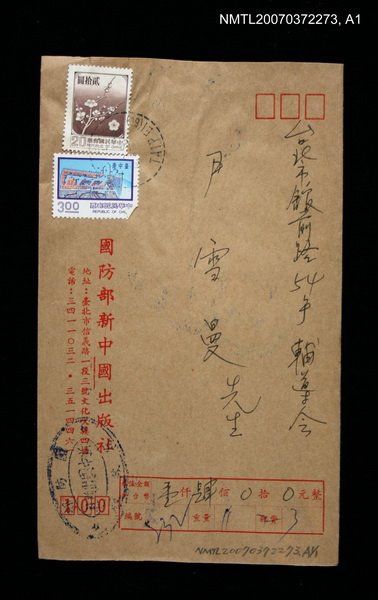 NMTL20070372273, A1
圓拾貳
20
票郵國民華中
3.00
票郵國民華中
REPUBLIC OF CHI
台北市館前路54号 輔導会
尹雪曼先生
國防部新中國出版社
地址：臺北市信義路一段三號文化大樓四樓
電話：三四一一〇三二・三五一四四六
100
台幣 壹仟肆佰0拾0元整
編號
重量
NMTL20070372273,A1